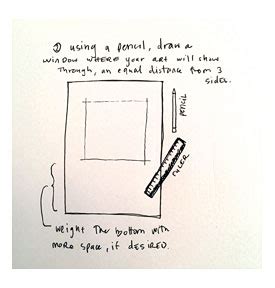 ① using a pencil, draw a
window WHERE your ART will show
Through, an equal distance from 3
sides.
PENCIL
RULER
weight The bottom with
more space, if DESIRED.